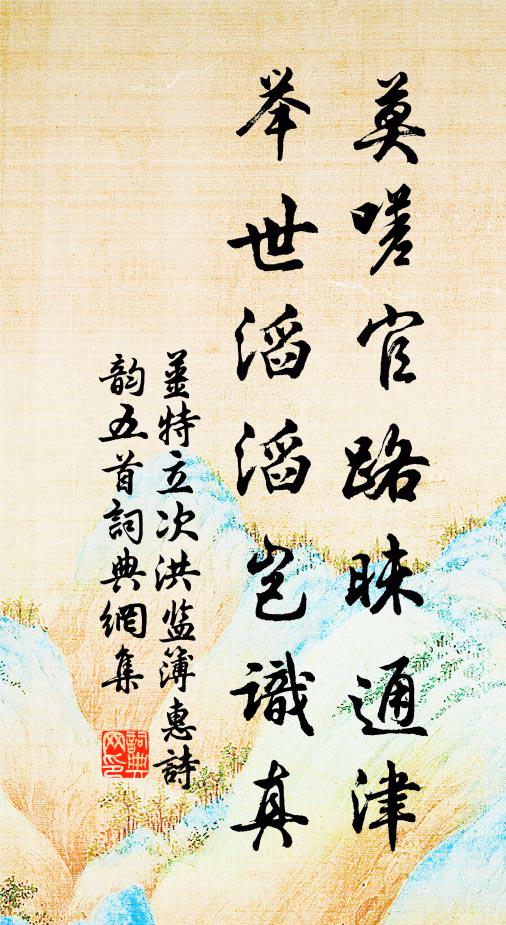 莫嗟官路昧通津
举世滔滔岂識真
姜特立次洪监簿惠詩
韵五首詞典網集
詞典網印